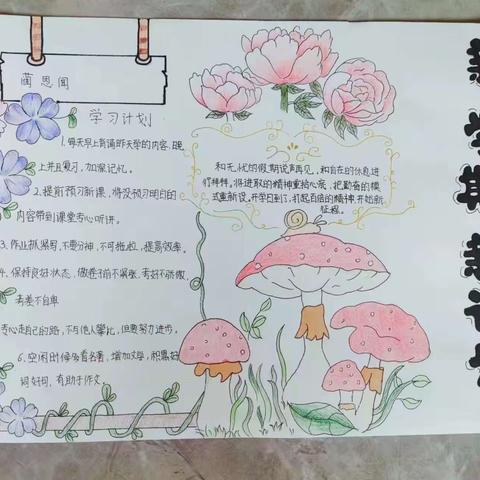 蔺思闻
学习计划
1.每天早上背诵昨天学的内容,晚
上并且复习,加深记忆。
2.提前预习新课,将没预习明白的
内容带到课堂专心听讲。
3.作业抓紧写,不要分神,不可拖拉,提高效率。
4.保持良好状态,做卷子前不紧张,考好不骄傲,
考差不自卑
专心走自己的路,不与他人攀比,但要努力进步。
6.空闲时候多看名著,增加文学,积累好
词好句,有助于作文
和无忧的假期说声再见,和自在的休息进
行拜拜。将进取的精神重拾心底,把勤奋的模
式重新设,开学日到了,打起百倍的精神,开始新
征程。
新学期新计划